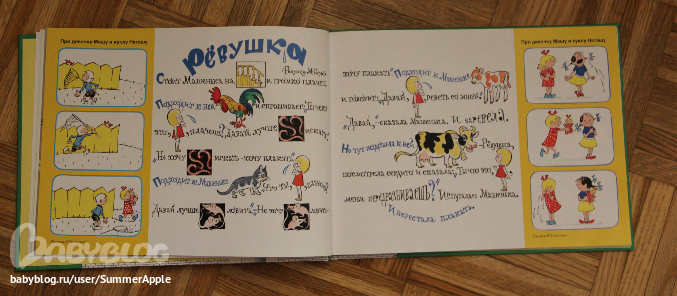 Про девочку Машу и куклу Наташу
РЁВУШКА
Стоит Машенька на и громко плачет.
Подходит к ней и спрашивает:
что плачешь? Давай лучше искать.
„Не хочу искать - хочу плакать!"
Подходит к Машеньке
Давай лучше ловить! Не хочу
BABYBLOG
babyblog.ru/user/SummerApple
хочу плакать! Подходит к Машеньке
и говорит: „Давай реветь со мной!"
„Давай," - сказала Машенька. И заревела.
Но тут подошла к ней - Рёвушка,
посмотрела сердито и сказала:
меня передразниваешь?" Испугалась Машенька.
И перестала плакать.
Про девочку Машу и куклу Наташу